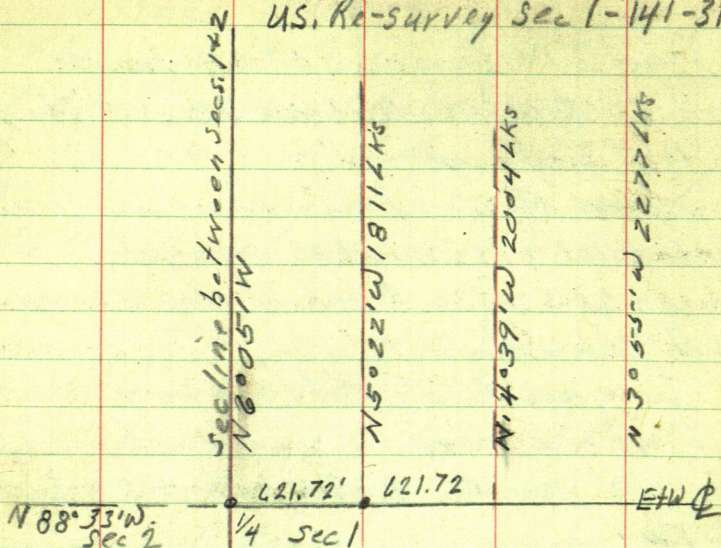 U.S. Re-survey Sec 1-141-31
Sec line between Secs. 1+2
N 6°05' W
N 5°22' W 1811 Lks
N. 4°39' W 2004 Lks
N 3°55' W 2277 Lks
621.72' 621.72
E+W ℄
N 88°33' W.
Sec 2
1/4 Sec 1